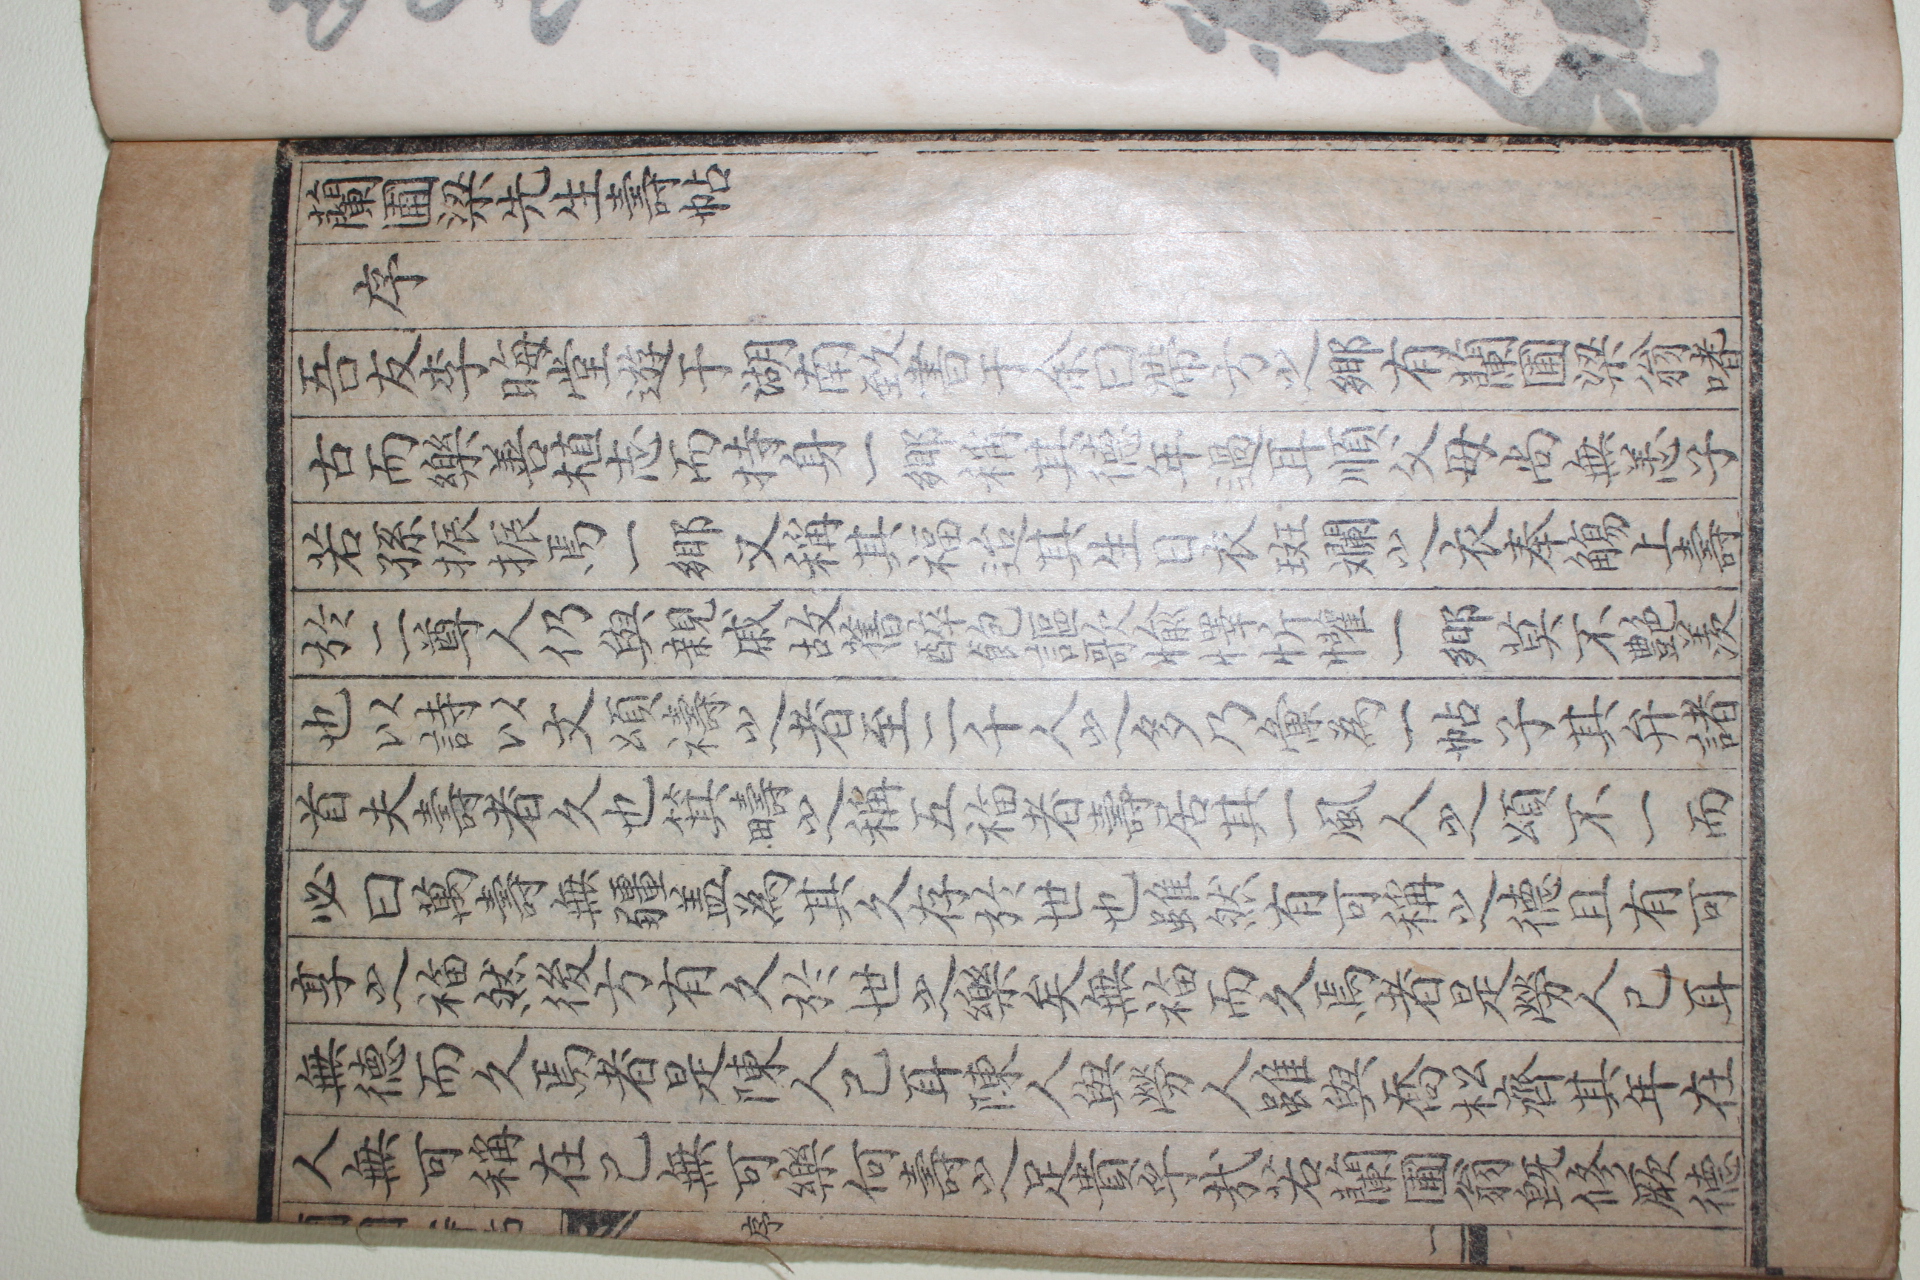 蘭圃梁先生壽帖
序
吾友李晦堂遊于湖南致書于余曰帶方之鄉有蘭圃梁翁嗜
古而樂善植志而持身一鄉稱其德年過耳順父母尚無恙子
若孫振振焉一鄉又稱其福迨其生日衣斑斕之衣奉觴上壽
於二尊人仍與親戚故舊醉飽謳歌愉懌忻懽一鄉莫不艶羡
也以詩以文頌禱之者至二千人之多乃彙為一帖子其弁諸
首夫壽者久也箕疇之稱五福者壽居其一風人之頌不一而
必曰萬壽無疆盖為其久存於世也雖然有可稱之德且有可
享之福然後方有久於世之樂矣無福而久焉者是勞人已耳
無德而久焉者是陳人已耳陳人與勞人雖與喬松齊其年在
人無可稱在己無可樂何壽之足貴乎哉若蘭圃翁旣修厥德
序
一